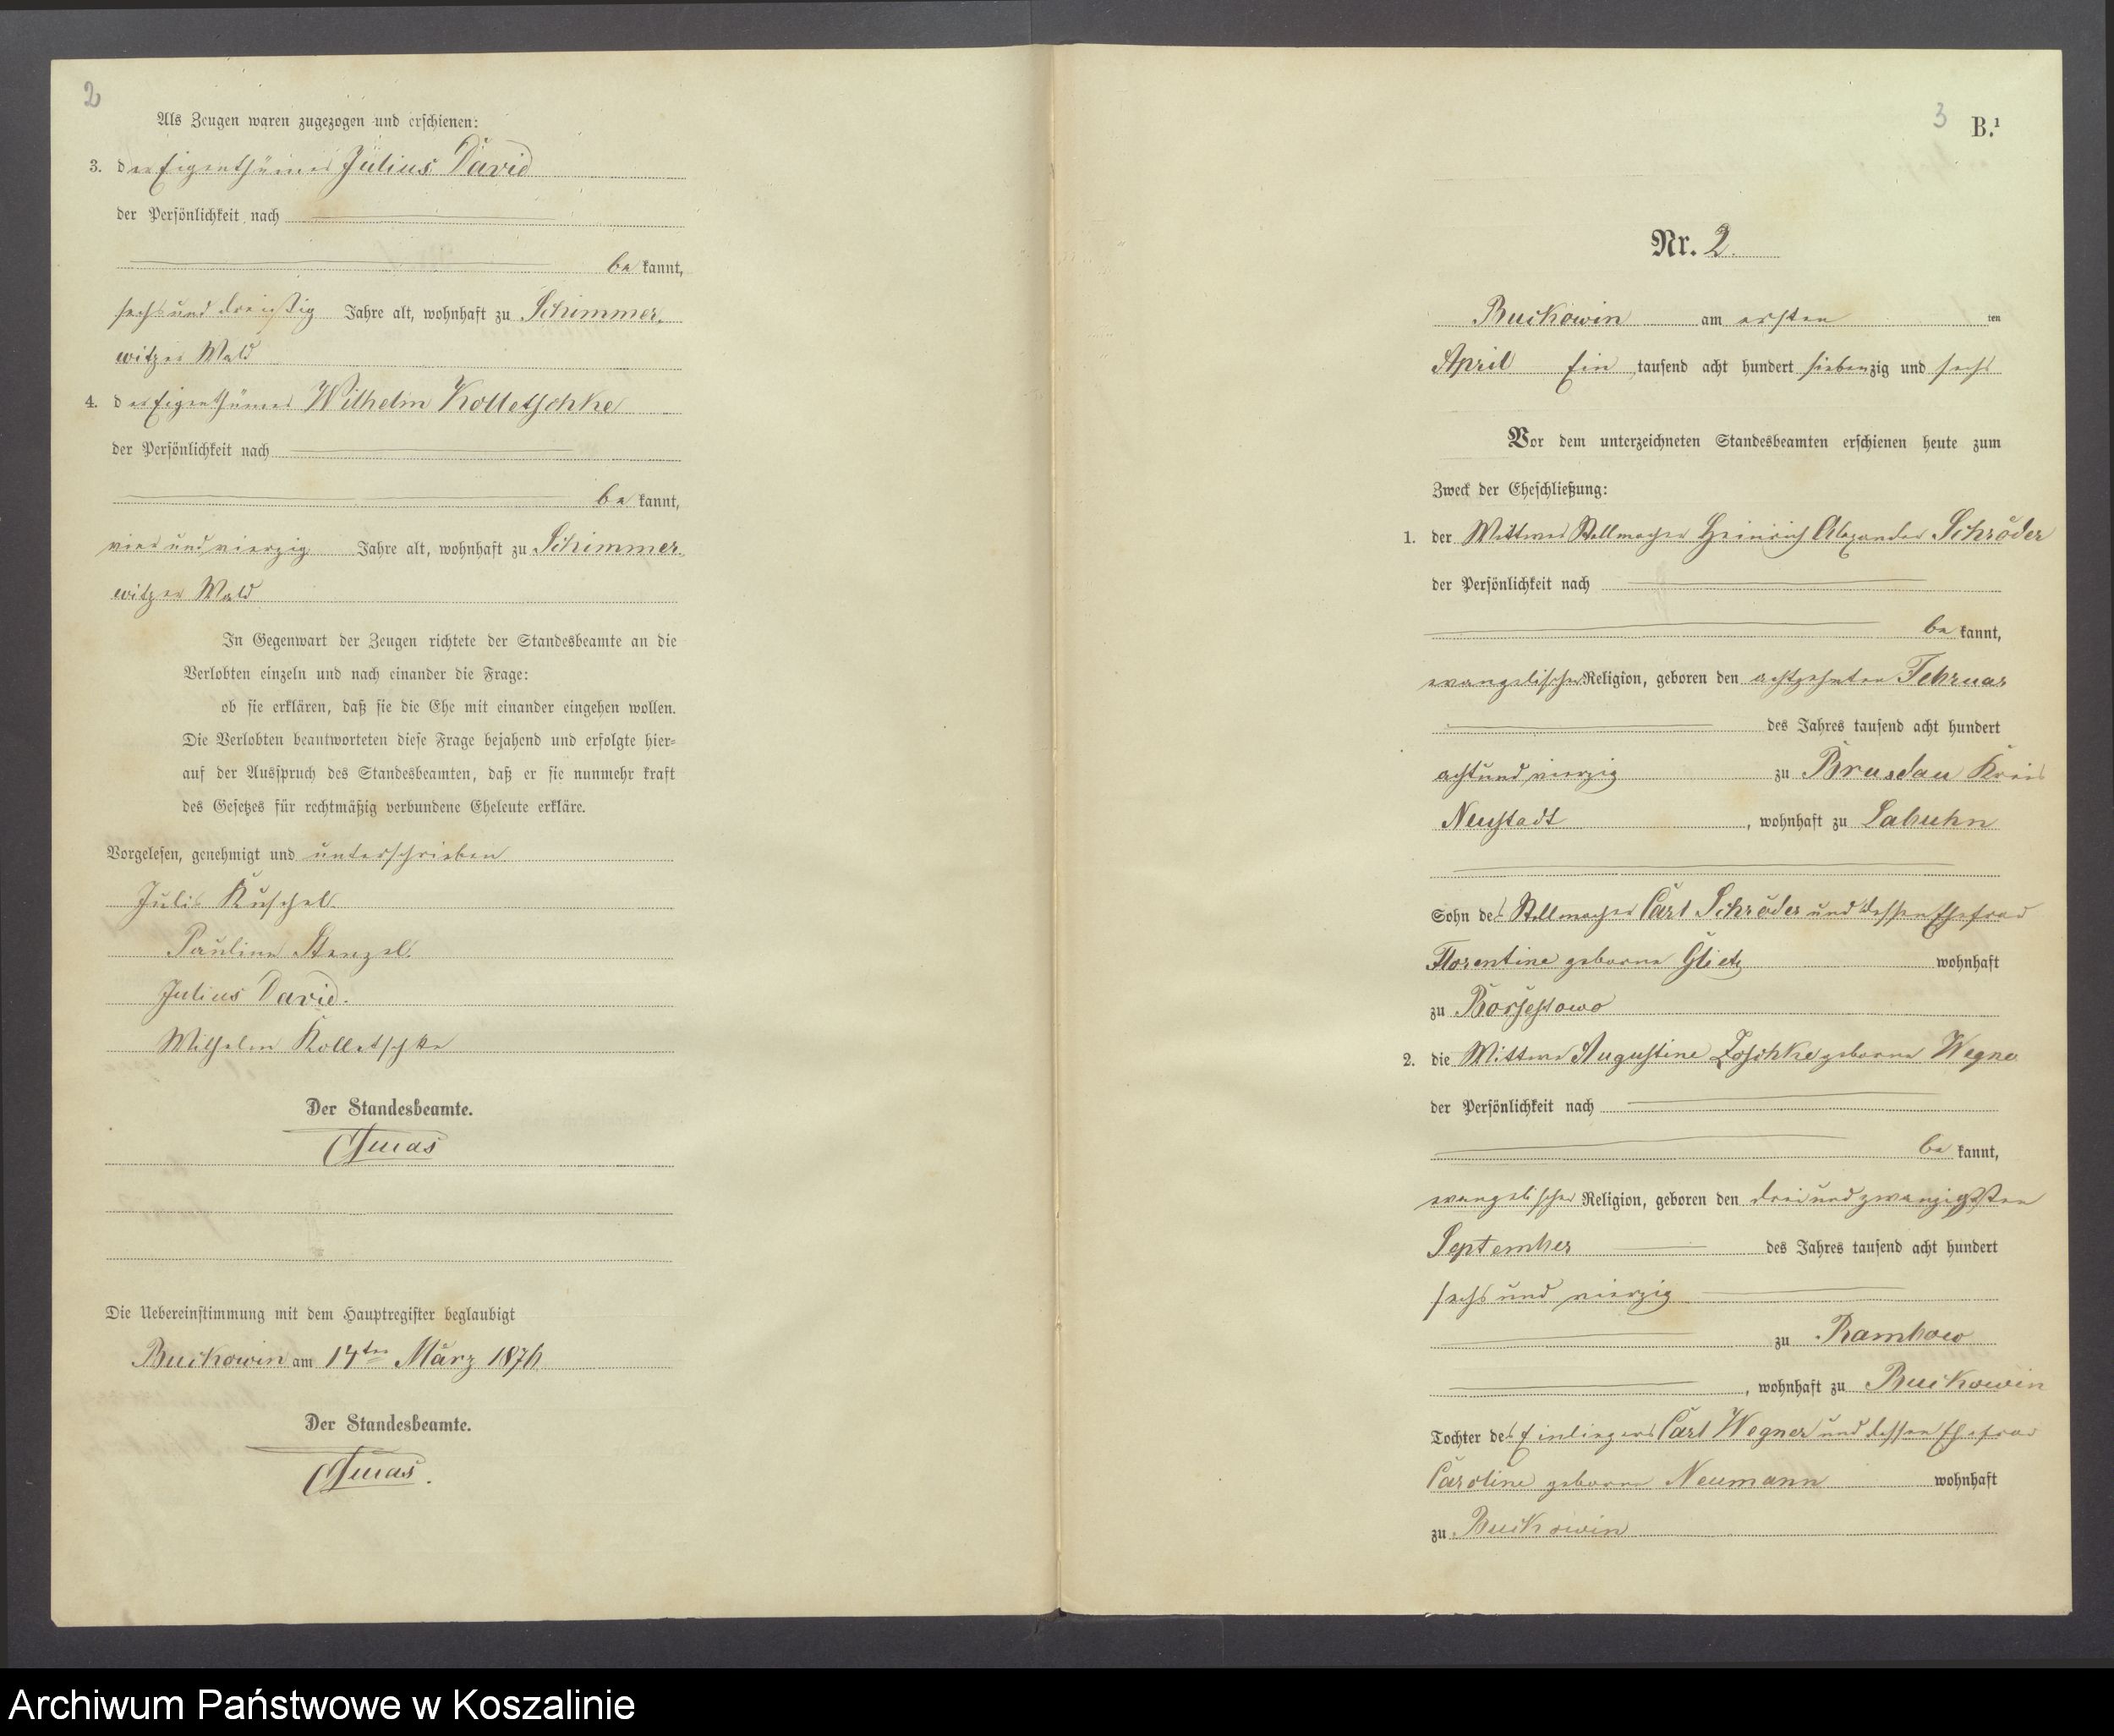 2
Als Zeugen waren zugezogen und erschienen:
3. der Eigenthümer Julius David
der Persönlichkeit nach
bekannt,
sechs und dreißig Jahre alt, wohnhaft zu Schimmer-
witzer Wald
4. der Eigenthümer Wilhelm Kolletschke
der Persönlichkeit nach
bekannt,
vier und vierzig Jahre alt, wohnhaft zu Schimmer-
witzer Wald
In Gegenwart der Zeugen richtete der Standesbeamte an die
Verlobten einzeln und nach einander die Frage:
ob sie erklären, daß sie die Ehe mit einander eingehen wollen.
Die Verlobten beantworteten diese Frage bejahend und erfolgte hier-
auf der Ausspruch des Standesbeamten, daß er sie nunmehr kraft
des Gesetzes für rechtmäßig verbundene Eheleute erkläre.
Vorgelesen, genehmigt und unterschrieben
Kuschel
Pauline Stenzel
Julius David.
Wilhelm Kolletschke
Der Standesbeamte.
Die Uebereinstimmung mit dem Hauptregister beglaubigt
Buckowin am 14ten März 1876
Der Standesbeamte.
3 B.1
Nr. 2
Buckowin am ersten ten
April Ein tausend acht hundert siebenzig und sechs
Vor dem unterzeichneten Standesbeamten erschienen heute zum
Zweck der Eheschließung:
1. der Wittwer Stellmacher Heinrich Alexander Schröder
der Persönlichkeit nach
bekannt,
evangelischer Religion, geboren den achtzehnten Februar
des Jahres tausend acht hundert
acht und vierzig zu Brusdau Kreis
Neustadt, wohnhaft zu Labuhn
Sohn des Stellmacher Carl Schröder und dessen Ehefrau
Florentine geborne Glietz wohnhaft
zu
2. die Wittwe Augustine Zoschke geborne Wegner
der Persönlichkeit nach
bekannt,
evangelischer Religion, geboren den drei und zwanzigsten
September des Jahres tausend acht hundert
sechs und vierzig
zu Rambow
, wohnhaft zu Buckowin
Tochter des Einliegers Carl Wegner und dessen Ehefrau
Caroline geborne Neumann wohnhaft
zu Buckowin
Archiwum Państwowe w Koszalinie